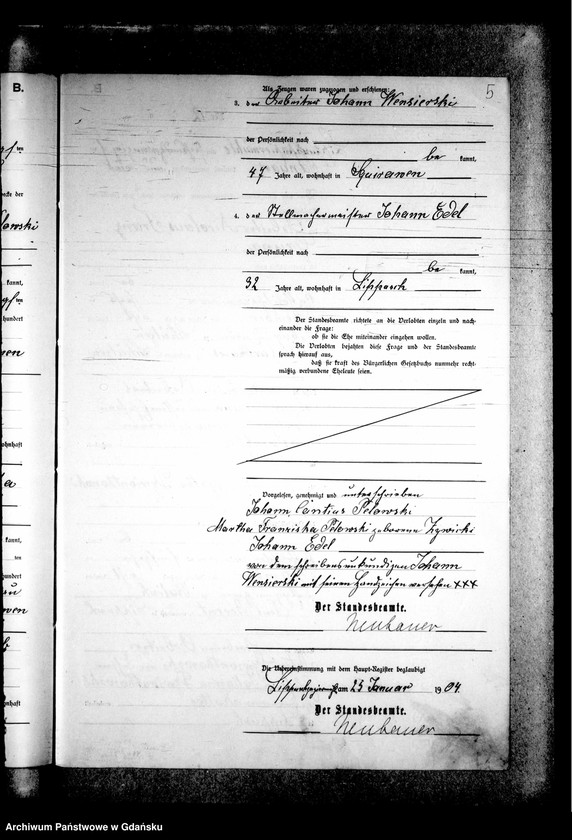 B.
5
Als Zeugen waren zugezogen und erschienen:
3. der Arbeiter Johann Wensierski
der Persönlichkeit nach
be kannt,
47 Jahre alt, wohnhaft in
4. der Stellmachermeister Johann Edel
der Persönlichkeit nach
be kannt,
32 Jahre alt, wohnhaft in Lippusch
Der Standesbeamte richtete an die Verlobten einzeln und nach-
einander die Frage:
ob sie die Ehe miteinander eingehen wollen.
Die Verlobten bejahten diese Frage und der Standesbeamte
sprach hierauf aus,
daß sie kraft des Bürgerlichen Gesetzbuchs nunmehr recht-
mäßig verbundene Eheleute seien.
Vorgelesen, genehmigt und unterschrieben
Johann Cantius Pelowski
Martha Franziska Pelowski geborene Zywicki
Johann Edel
von dem schreibensunkundigen Johann
Wensierski mit seinem Handzeichen versehen xxx
Der Standesbeamte.
Neubauer
Die Uebereinstimmung mit dem Haupt-Register beglaubigt
am 23 Januar 1904.
Der Standesbeamte.
Neubauer
Archiwum Państwowe w Gdańsku